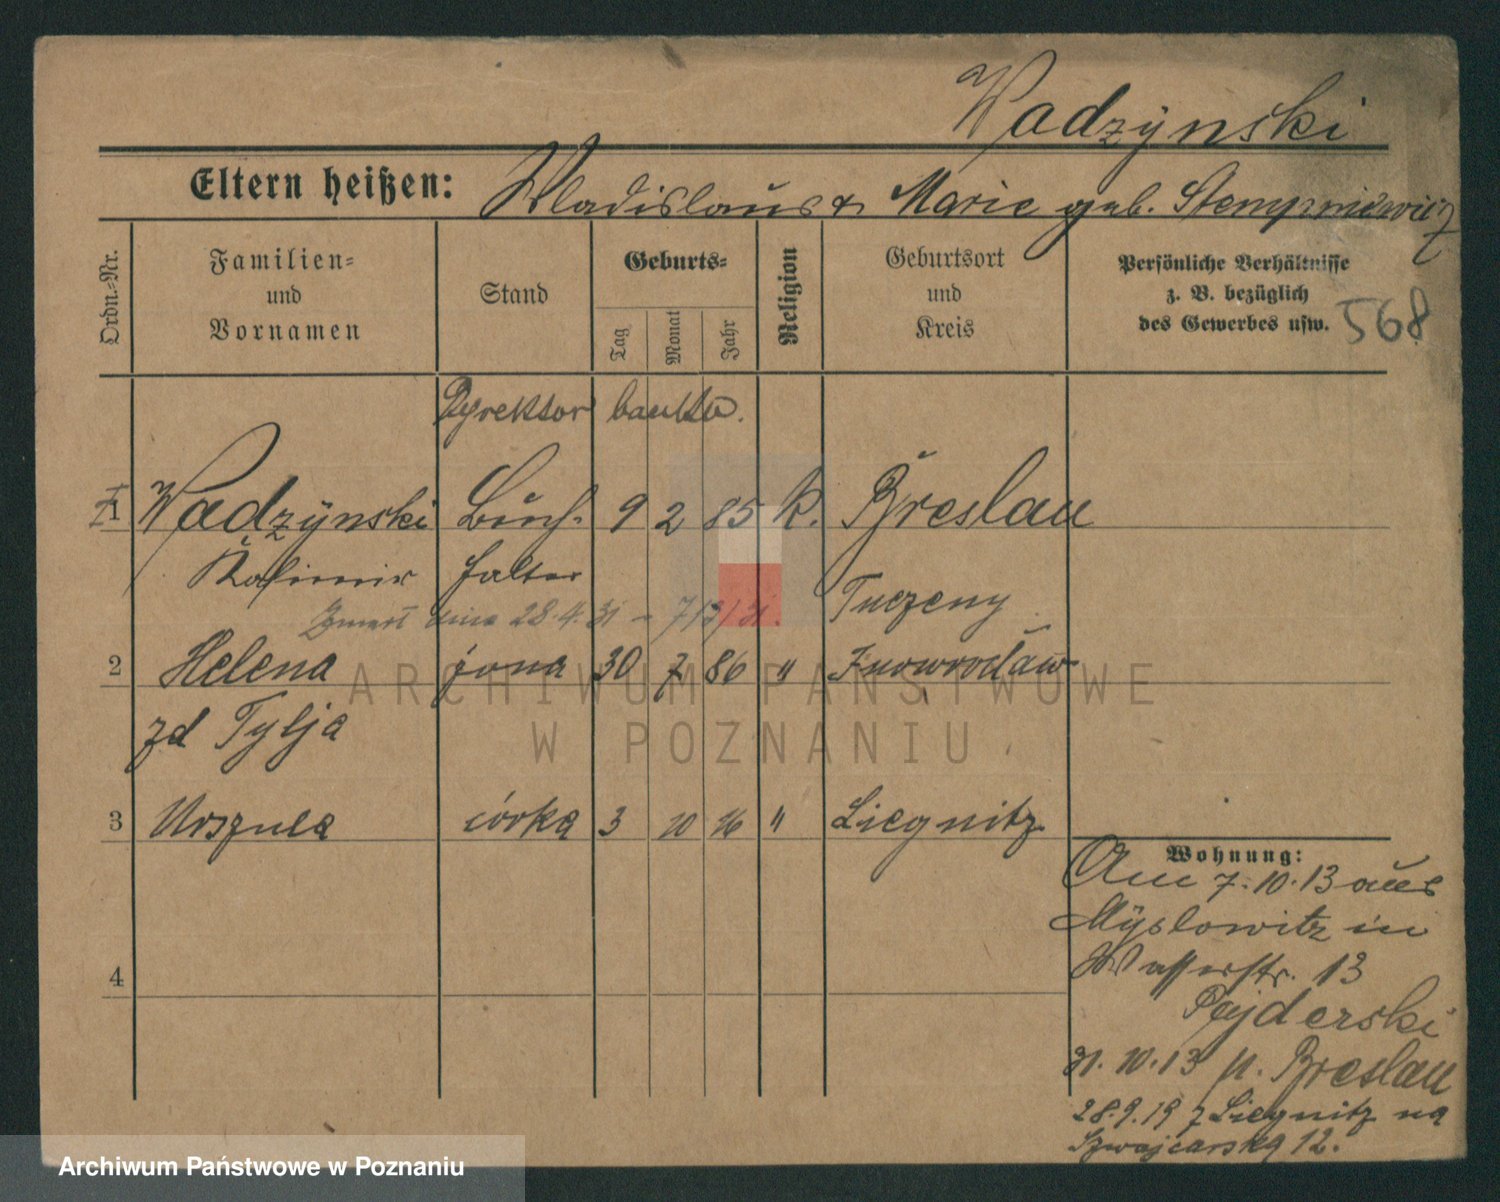 Wadzÿnski
Eltern heißen: Wladislaus & Marie geb. Stempniewicz
Ordn.-Nr.
Familien-
und
Vornamen
Stand
Geburts-
Tag
Monat
Jahr
Religion
Geburtsort
und
Kreis
Persönliche Verhältnisse
z. B. bezüglich
des Gewerbes usw.
568
Dyrektor banku.
1 Wadzÿnski Buch- 9 2 85 k. Breslau
Kasimir halter
Zmarł dnia 28.4.31 - 713/31. Tuczeny
2 Helena żona 30 7 86 " Inowrocław
zd Tylja
3 Urszula córka 3 10 16 " Liegnitz
4
Wohnung:
Am 7.10.13 aus
Mÿslowitz in
Wasserstr. 13
Pajderski
31.10.13 n. Breslau
28.9.19 z Liegnitz na
Szwajcarska 12.
ARCHIWUM PAŃSTWOWE
W POZNANIU
Archiwum Państwowe w Poznaniu